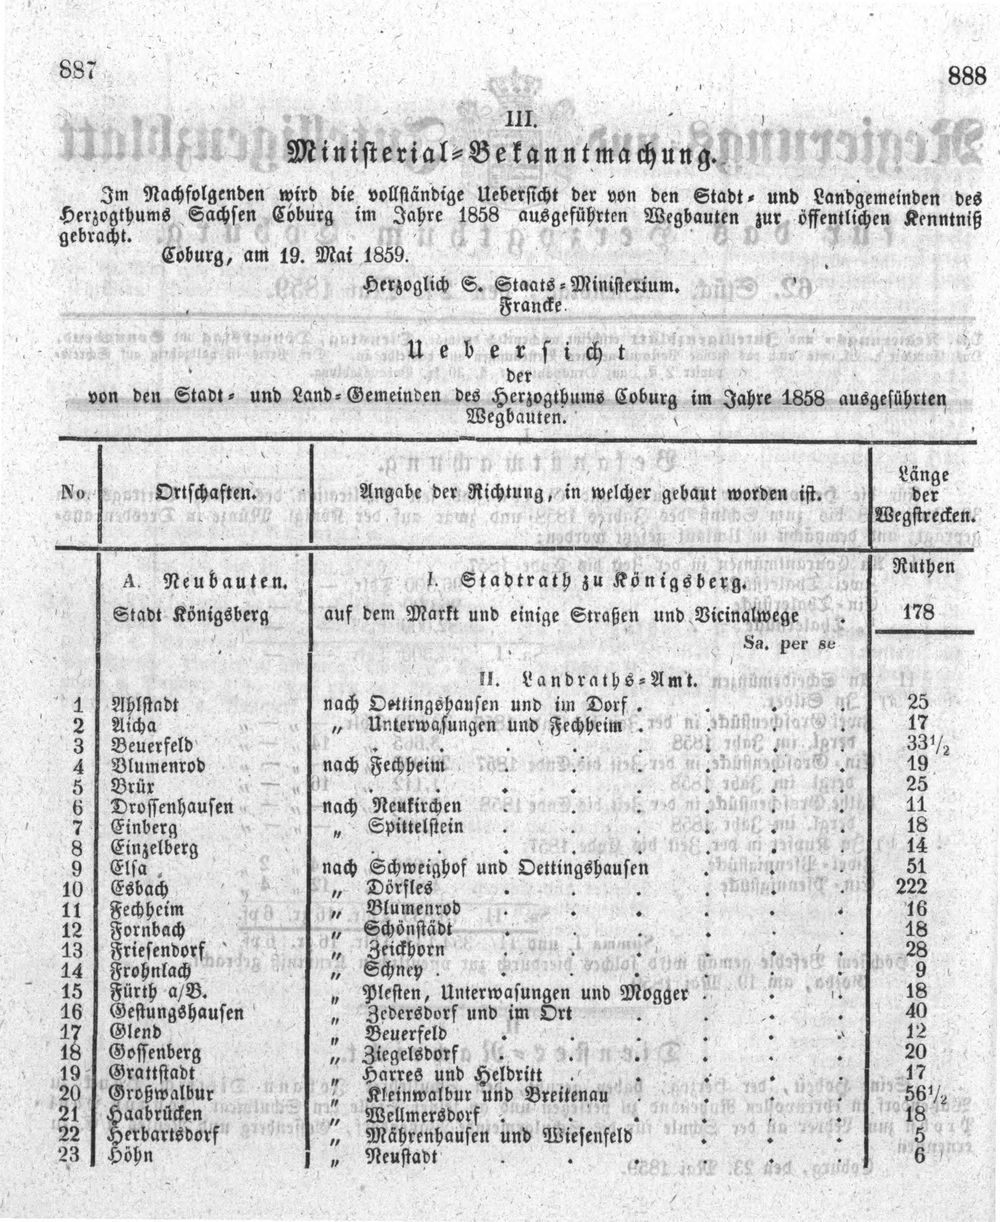 887
888
III.
Ministerial-Bekanntmachung.
Im Nachfolgenden wird die vollständige Uebersicht der von den Stadt- und Landgemeinden des
Herzogthums Sachsen Coburg im Jahre 1858 ausgeführten Wegbauten zur öffentlichen Kenntniß
gebracht.
Coburg, am 19. Mai 1859.
Herzoglich S. Staats-Ministerium.
Francke.
Uebersicht
der
von den Stadt- und Land-Gemeinden des Herzogthums Coburg im Jahre 1858 ausgeführten
Wegbauten.
No. Ortschaften. Angabe der Richtung, in welcher gebaut worden ist. Länge der Wegstrecken.
A. Neubauten. I. Stadtrath zu Königsberg. Ruthen
Stadt Königsberg auf dem Markt und einige Straßen und Vicinalwege . 178
Sa. per se
II. Landraths-Amt.
1 Ahlstadt nach Oettingshausen und im Dorf . 25
2 Aicha „ Unterwasungen und Fechheim . 17
3 Beuerfeld . 33 1/2
4 Blumenrod nach Fechheim . 19
5 Brüx . 25
6 Drossenhausen nach Neukirchen . 11
7 Einberg „ Spittelstein . 18
8 Einzelberg . 14
9 Elsa nach Schweighof und Oettingshausen . 51
10 Esbach „ Dörfles . 222
11 Fechheim „ Blumenrod . 16
12 Fornbach „ Schönstädt . 18
13 Friesendorf „ Zeickhorn . 28
14 Frohnlach „ Schney . 9
15 Fürth a/B. „ Plesten, Unterwasungen und Mogger . 18
16 Gestungshausen „ Zedersdorf und im Ort . 40
17 Glend „ Beuerfeld . 12
18 Gossenberg „ Ziegelsdorf . 20
19 Grattstadt „ Harres und Heldritt . 17
20 Großwalbur „ Kleinwalbur und Breitenau . 56 1/2
21 Haabrücken „ Wellmersdorf . 18
22 Herbartsdorf „ Mährenhausen und Wiesenfeld . 5
23 Höhn „ Neustadt . 6